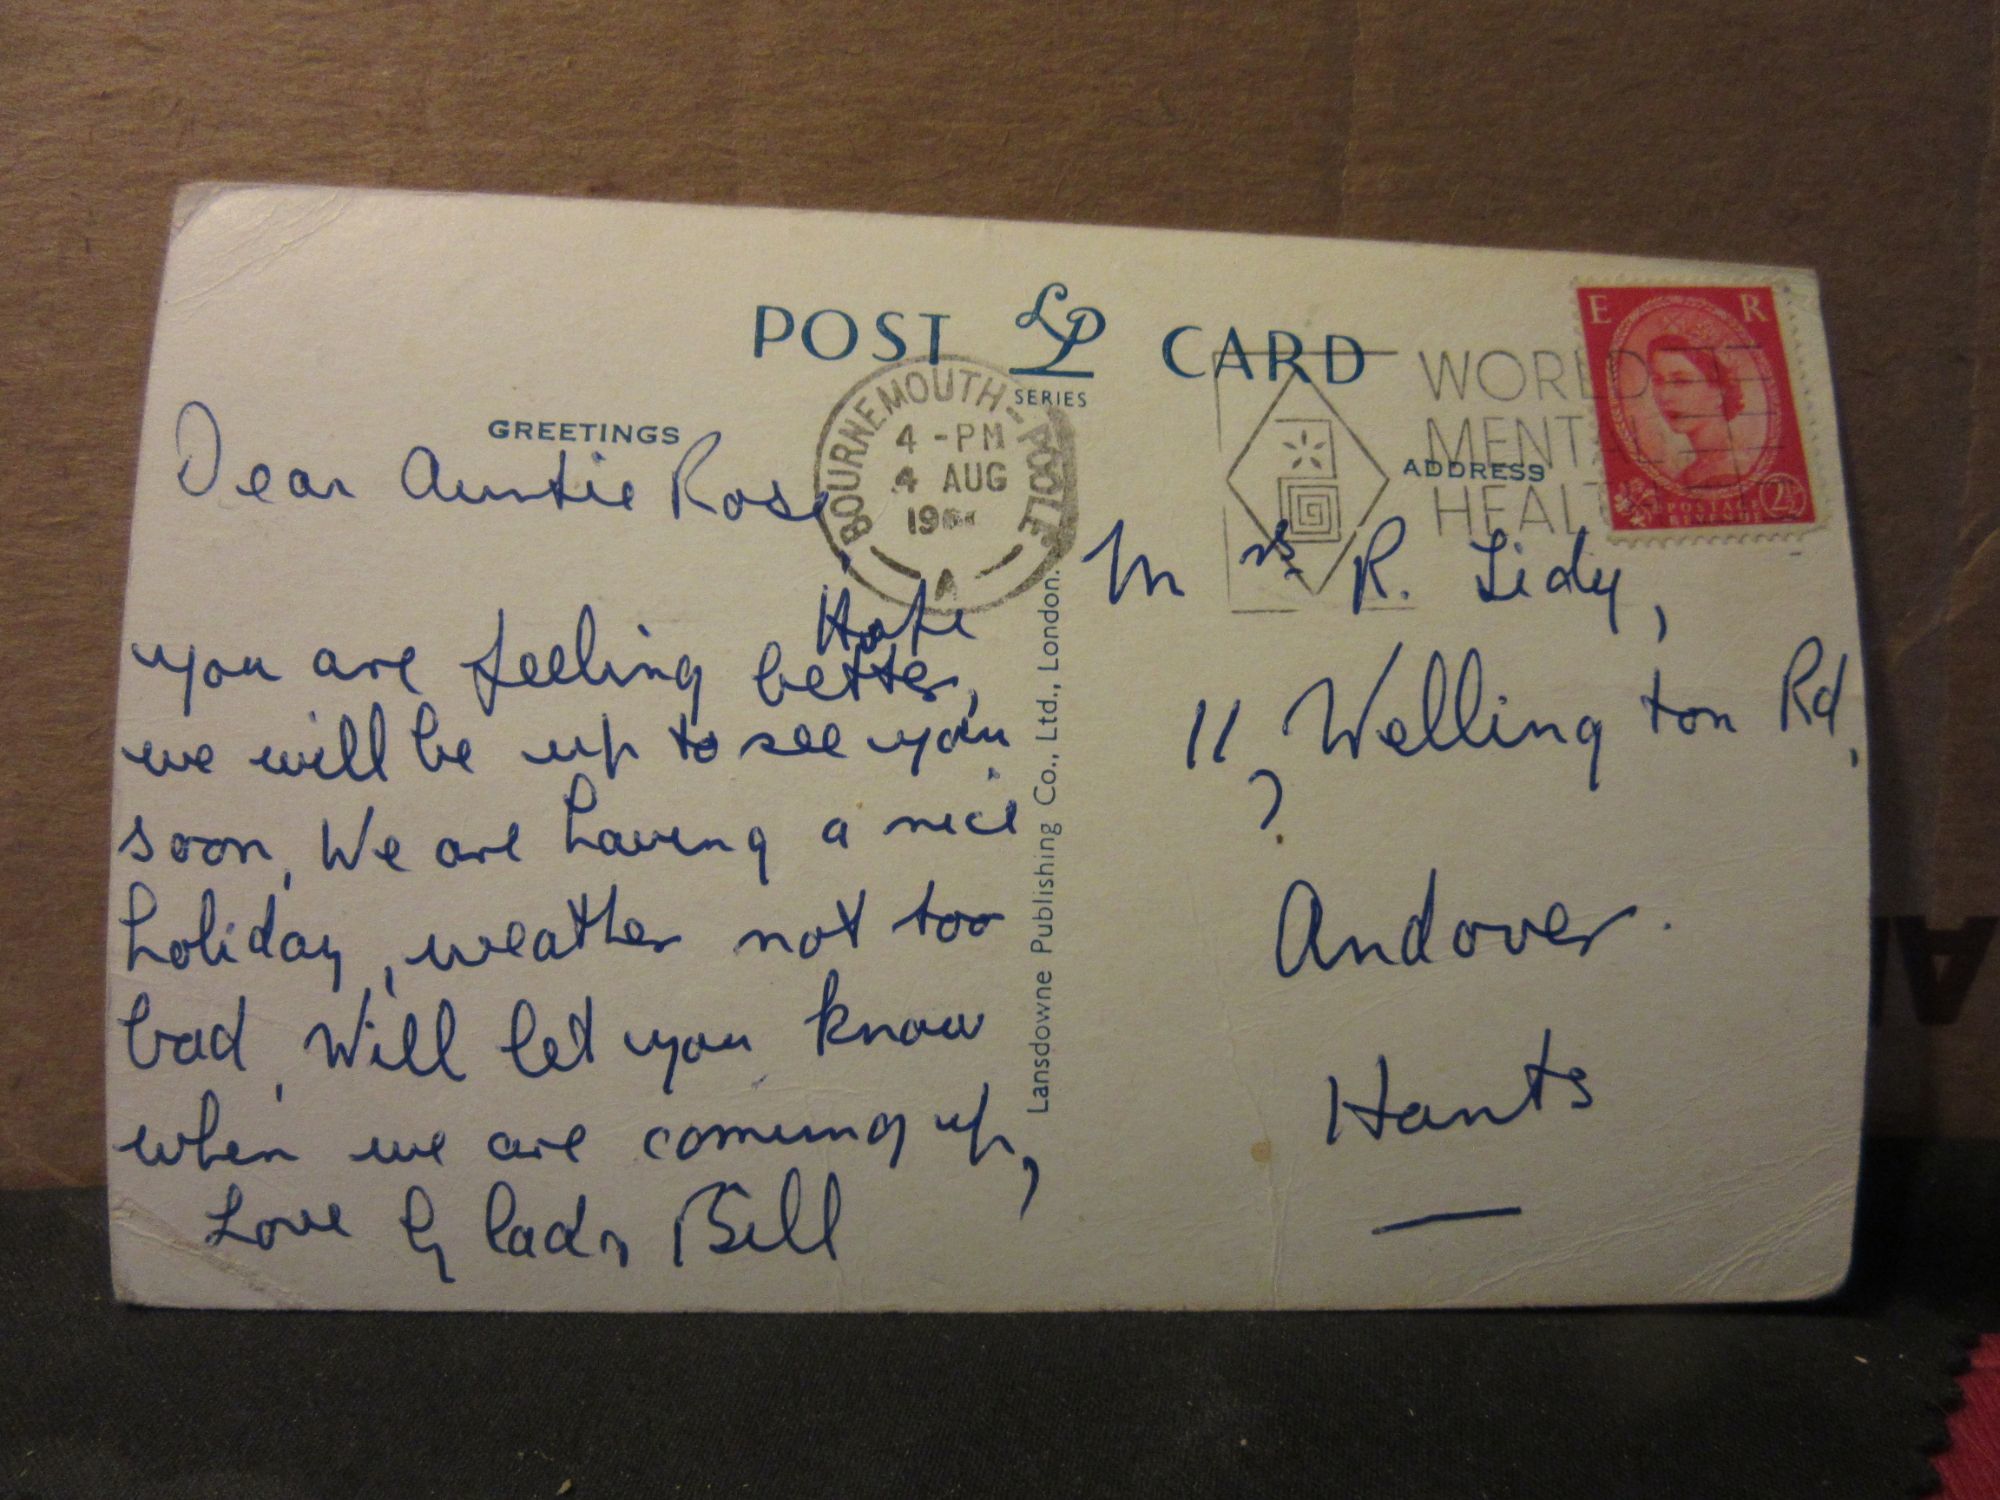 POST LP CARD
SERIES
GREETINGS
Dear Auntie Rose,
Hope
you are feeling better,
we will be up to see you
soon, We are having a nice
holiday, weather not too
bad, Will let you know
when we are coming up,
Love Gladys Bill
BOURNEMOUTH-POOLE
4 - PM
4 AUG
A
Lansdowne Publishing Co., Ltd., London.
WORLD
MENTAL
HEAL
ADDRESS
E R
POSTAGE
REVENUE
2½
Mrs. R. Lidy,
11, Wellington Rd,
Andover.
Hants